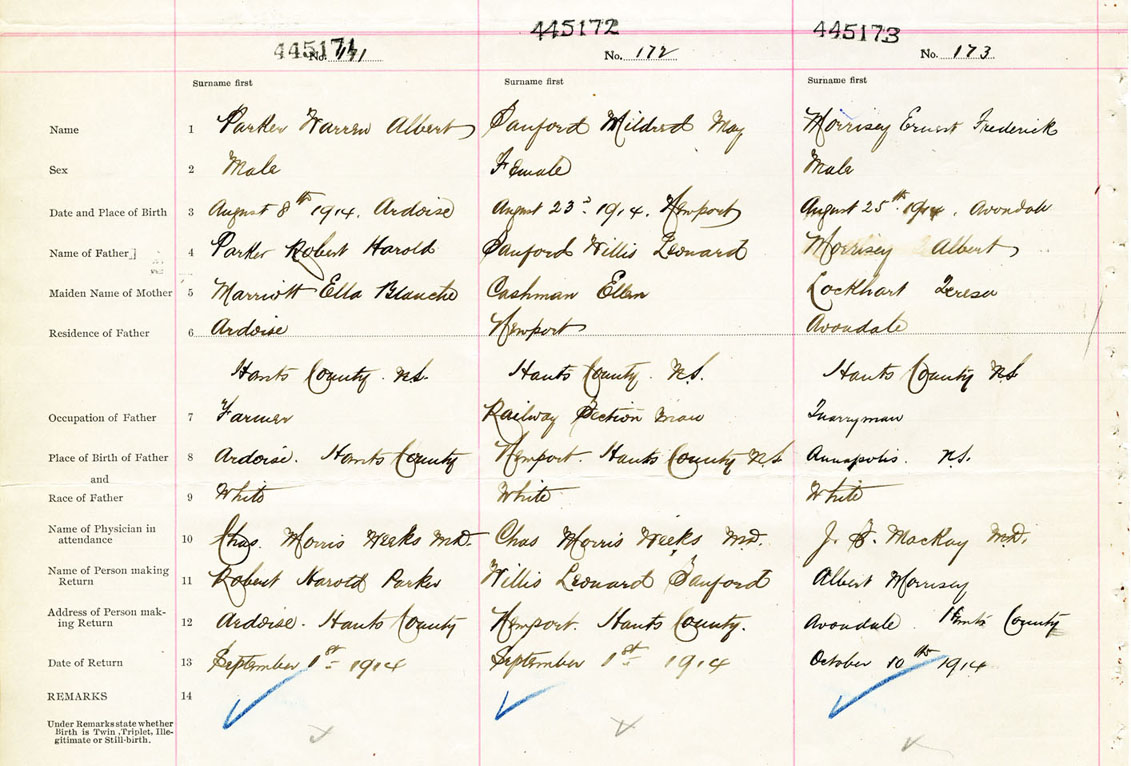 445171 445172 445173
No. 171 No. 172 No. 173
Surname first Surname first Surname first
Name 1 Parker Warren Albert Sanford Mildred May Morrisey Ernest Frederick
Sex 2 Male Female Male
Date and Place of Birth 3 August 8th 1914. Ardoise August 23d 1914. Newport August 25th 1914. Avondale
Name of Father 4 Parker Robert Harold Sanford Willis Leonard Morrisey Albert
Maiden Name of Mother 5 Marriott Ella Blanche Cashman Ellen Lockhart Teresa
Residence of Father 6 Ardoise Newport Avondale
Hants County. N.S. Hants County. N.S. Hants County N.S.
Occupation of Father 7 Farmer Railway Section man Quarryman
Place of Birth of Father 8 Ardoise. Hants County Newport. Hants County N.S. Annapolis. N.S.
and
Race of Father 9 White White White
Name of Physician in
attendance 10 Chas. Morris Weeks M.D. Chas Morris Weeks M.D. J. MacKay M.D.
Name of Person making
Return 11 Robert Harold Parker Willis Leonard Sanford Albert Morrisey
Address of Person mak-
ing Return 12 Ardoise. Hants County Newport. Hants County. Avondale. Hants County
Date of Return 13 September 1st 1914 September 1st 1914 October 10th 1914
REMARKS 14
Under Remarks state whether
Birth is Twin, Triplet, Ille-
gitimate or Still-birth.